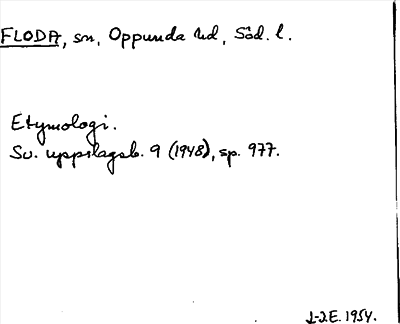 FLODA, sn, Oppunda hd, Söd. l.
Etymologi.
Sv. uppslagsb. 9 (1948), sp. 977.
J-2E. 1954.